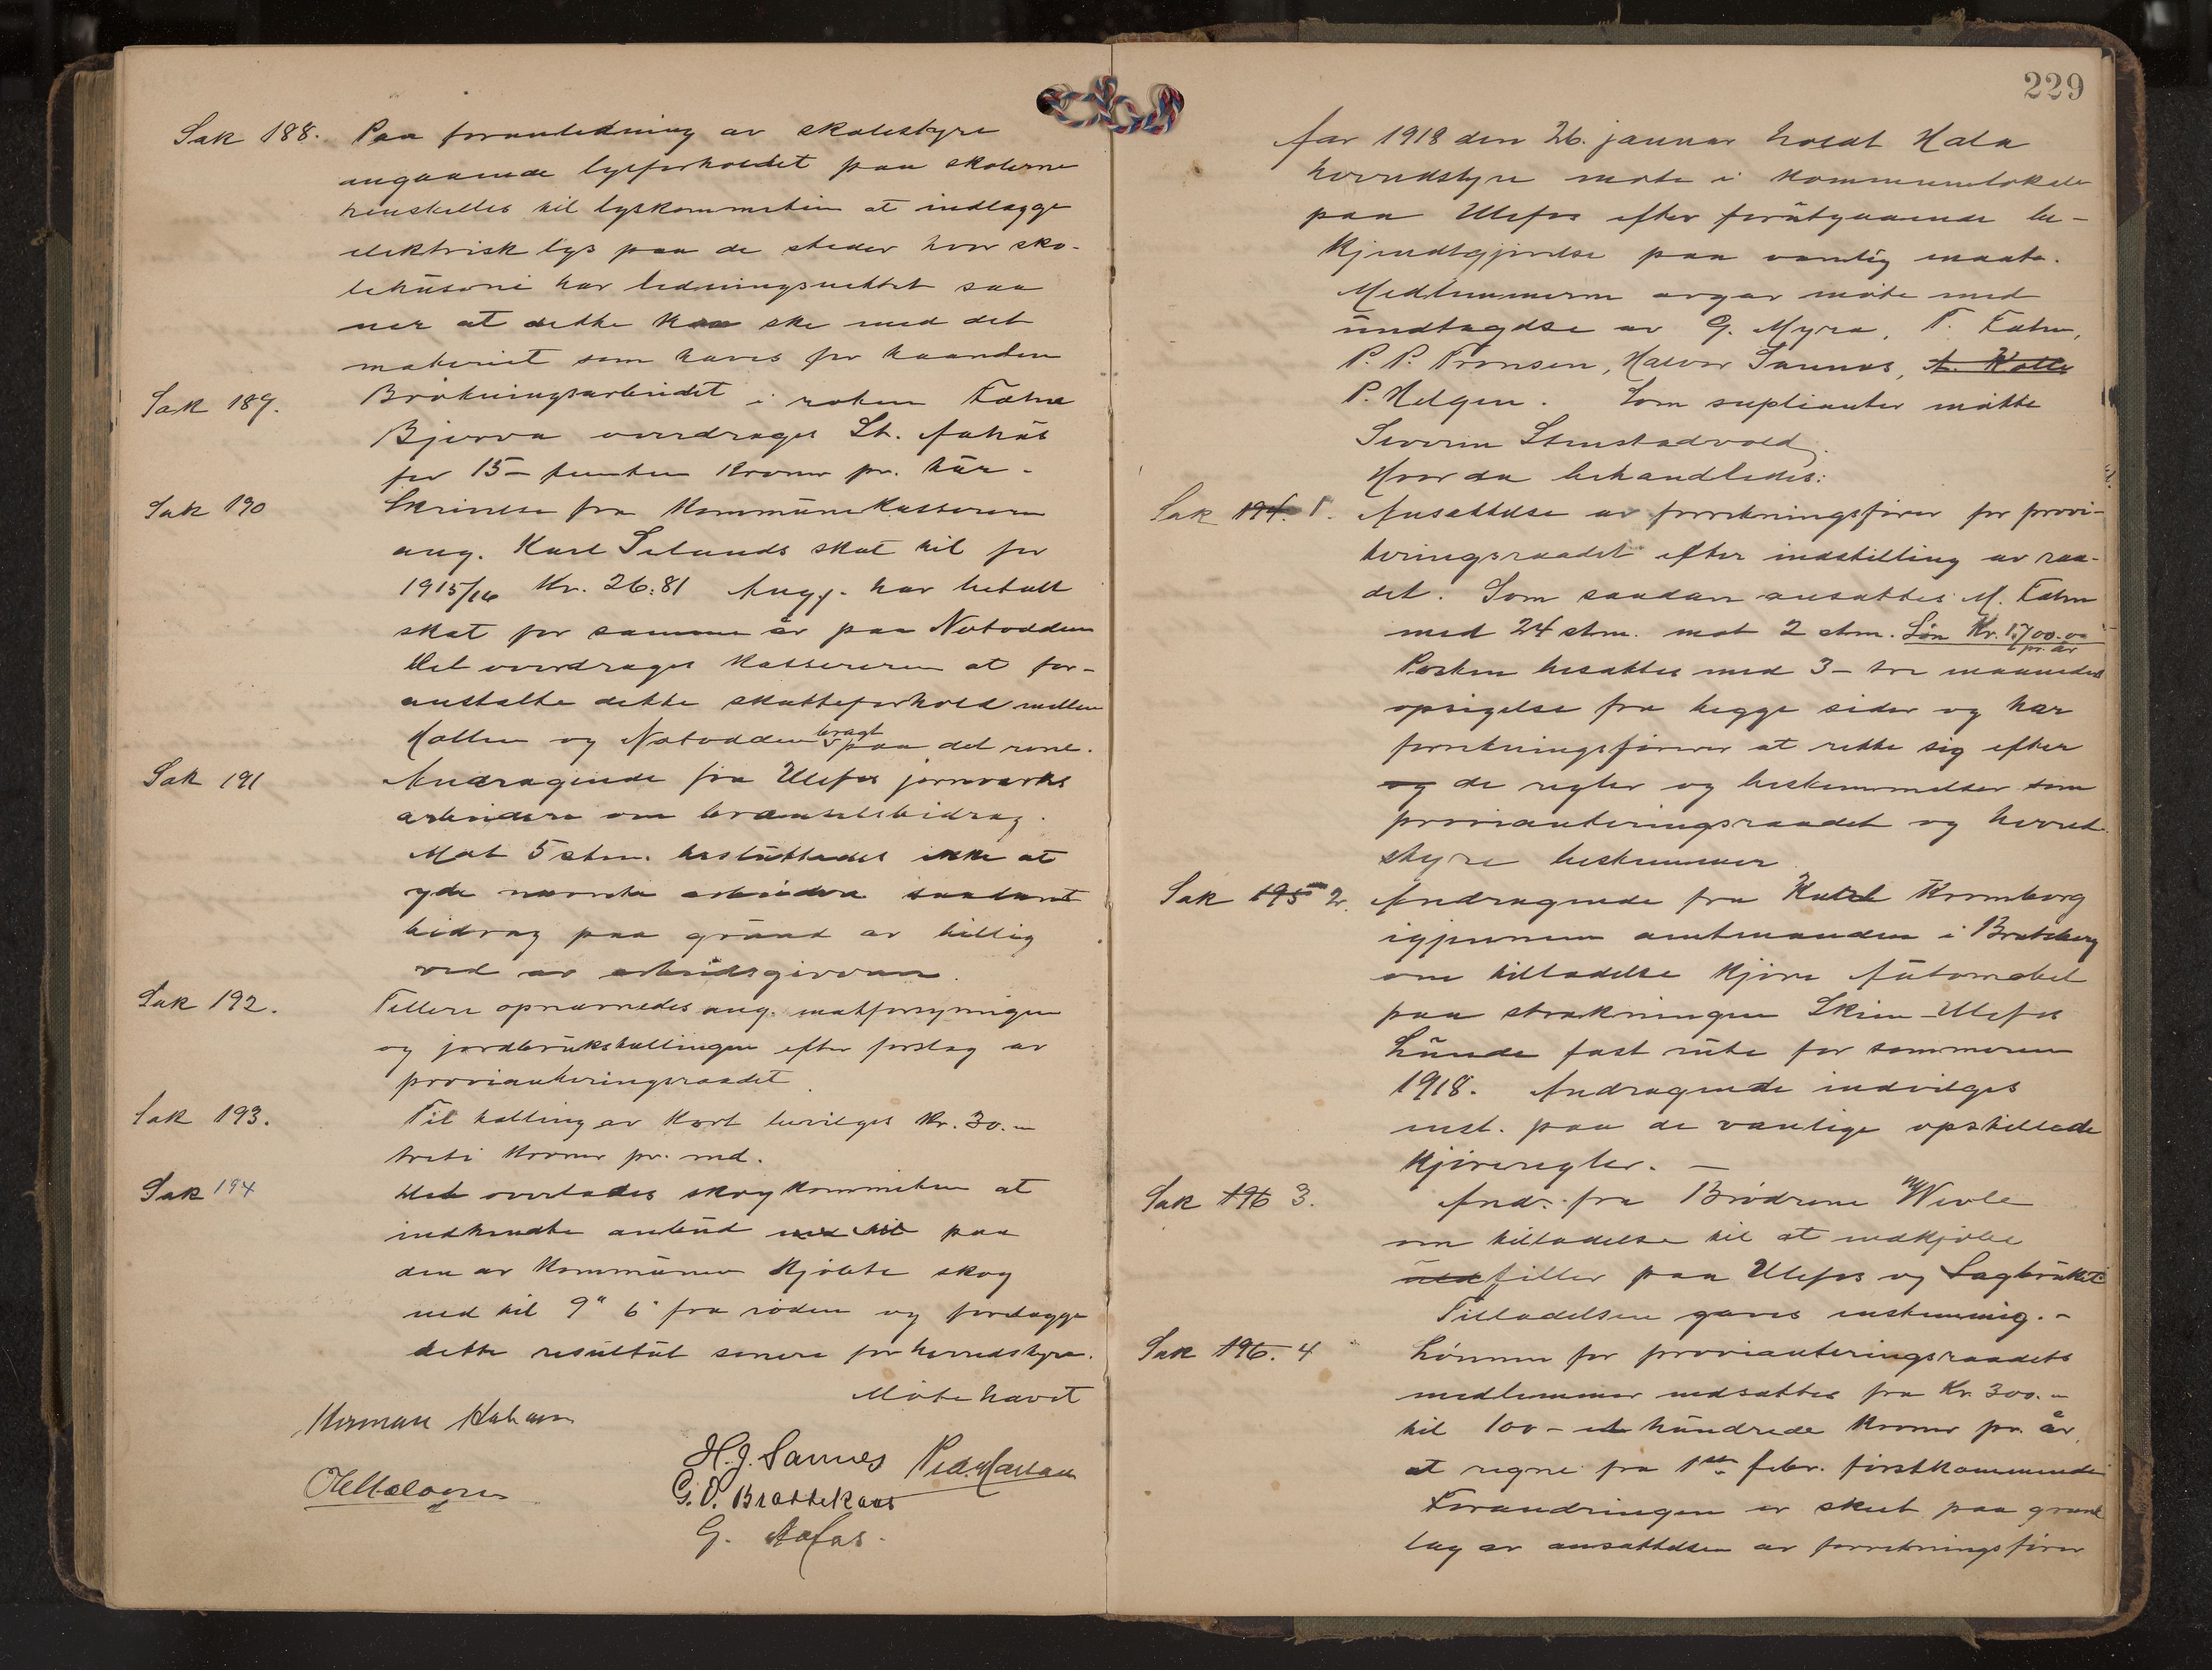 Sak 188. Paa foranledning av skolestyre
angaaende lysforholdet paa skolerne
henstilles til lyskommiteen at indlægge
elektrisk lys paa de steder hvor sko-
lehusene har ledningsnettet saa
nær at dette kan ske med det
materiel som haves for haanden
Sak 189. Brøitningsarbeidet i roten Fæhn
Bjerva overdrages St. Aahus
for 15 - femten kroner pr. kür.
Sak 190 Skrivelse fra Kommünekasseren
ang. Karl Selands skat til for
1915/16 Kr. 26:81 Angj. har betalt
skat for samme år paa Notodden
Det overdrages kassereren at for-
anstalte dette skatteforhold mellem
Hollen og Notodden bragt paa det rene.
Sak 191 Andragende fra Ulefos jernværks
arbeidere om brænselsbidrag.
Mot 5 stm. besluttedes ikke at
yde nævnte arbeidere saadant
bidrag paa grund av billig
ved av arbeidsgiveren.
Sak 192. Tellere opnævnedes ang. matforsyningen
og jordbrukstællingen efter forslag av
provianteringsraadet.
Sak 193. Til tælling av kort bevilges kr. 30.-
treti kroner pr. md.
Sak 194 Det overlades skogkommiteen at
indhente anbud ned til paa
den av kommünen kjøbte skog
ned til 9" 6" fra roden og forelægge
dette resultat senere for herredstyre.
Møte hævet
Herman
H.J. Sannes
G.O. Brattekaas
G. Aafos.
229
Aar 1918 den 26. januar holdt Hola
herredstyre møte i kommunelokale
paa Ulefos efter forutgaaende be-
kjendtgjørelse paa vanlig maate.
Medlemmerne avgav møte med
undtagelse av G. Myra, T. Fæhn,
P. P. Fransen, Halvor Sannes, A. Kolle
P. Helgen. Som suplianter møtte
Severin Stenstadvold.
Hvor da behandledes:
Sak 194. 1. Ansættelse av forretningsfører for provi-
teringsraadet efter indstilling av raa-
det. Som saadan ansattes M. Fæhn
med 24 stm. mot 2 stm. Løn Kr. 1.700.00
pr. år
Posten besættes med 3 - tre maaneders
opsigelse fra begge sider og har
forretningsfører at rette sig efter
og de regler og bestemmelser som
provianteringsraadet og herred-
styre bestemmer
Sak 195 2. Andragende fra Kromborg
igjennem amtmanden i Bratsberg
om tilladelse kjøre Automobel
paa strækningen Skien - Ulefos
Lunde fast rute for sommeren
1918. Andragende indvilges
enst. paa de vanlige opstillede
kjøreregler. -
Sak 196 3. And. fra Brødrene Nevle
om tilladelse til at indkjøbe
filler paa Ulefos og Sagbruket
Tilladelsen gaves enstemmig. -
Sak 196. 4 Lønnen for provianteringsraadets
medlemmer nedsættes fra Kr. 300.-
til 100 - et hundrede kroner pr. år,
at regne fra 1ste febr. førstkommende
Forandringen er skeet paa grund
lag av ansættelsen av forretningsfører